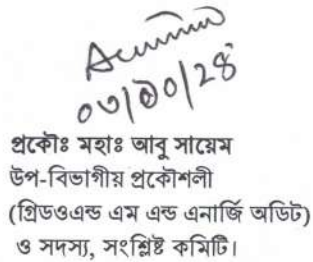 ০৩/১০/২৪
প্রকৌঃ মহাঃ আবু সায়েম
উপ-বিভাগীয় প্রকৌশলী
(গ্রিডওএন্ড এম এন্ড এনার্জি অডিট)
ও সদস্য, সংশ্লিষ্ট কমিটি।